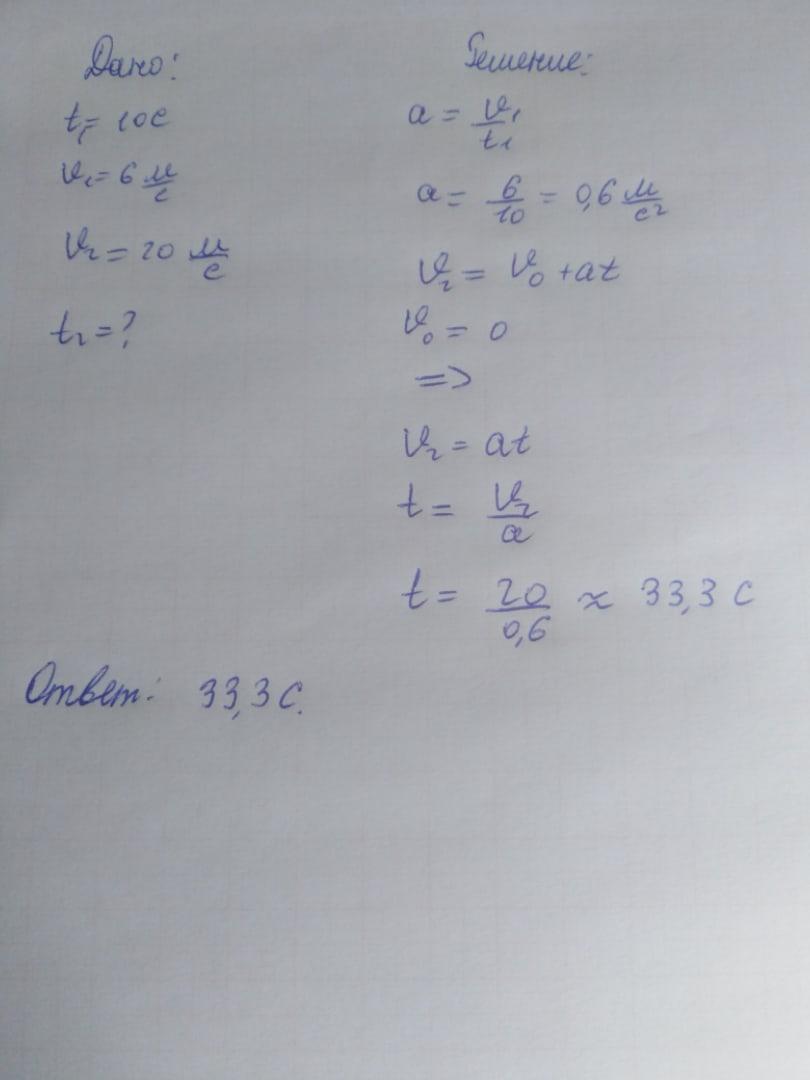 Дано:
t₁ = 10с
v₁ = 6 м/с
v₂ = 20 м/с
t₂ = ?
Решение:
a = v₁/t₁
a = 6/10 = 0,6 м/с²
v₂ = v₀ + at
v₀ = 0
=>
v₂ = at
t = v₂/a
t = 20/0,6 ≈ 33,3 с
Ответ: 33,3 с.